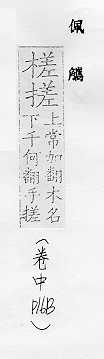 佩觿
槎搓
上常加翻木名
下千何翻手搓
(卷中
P16B
)